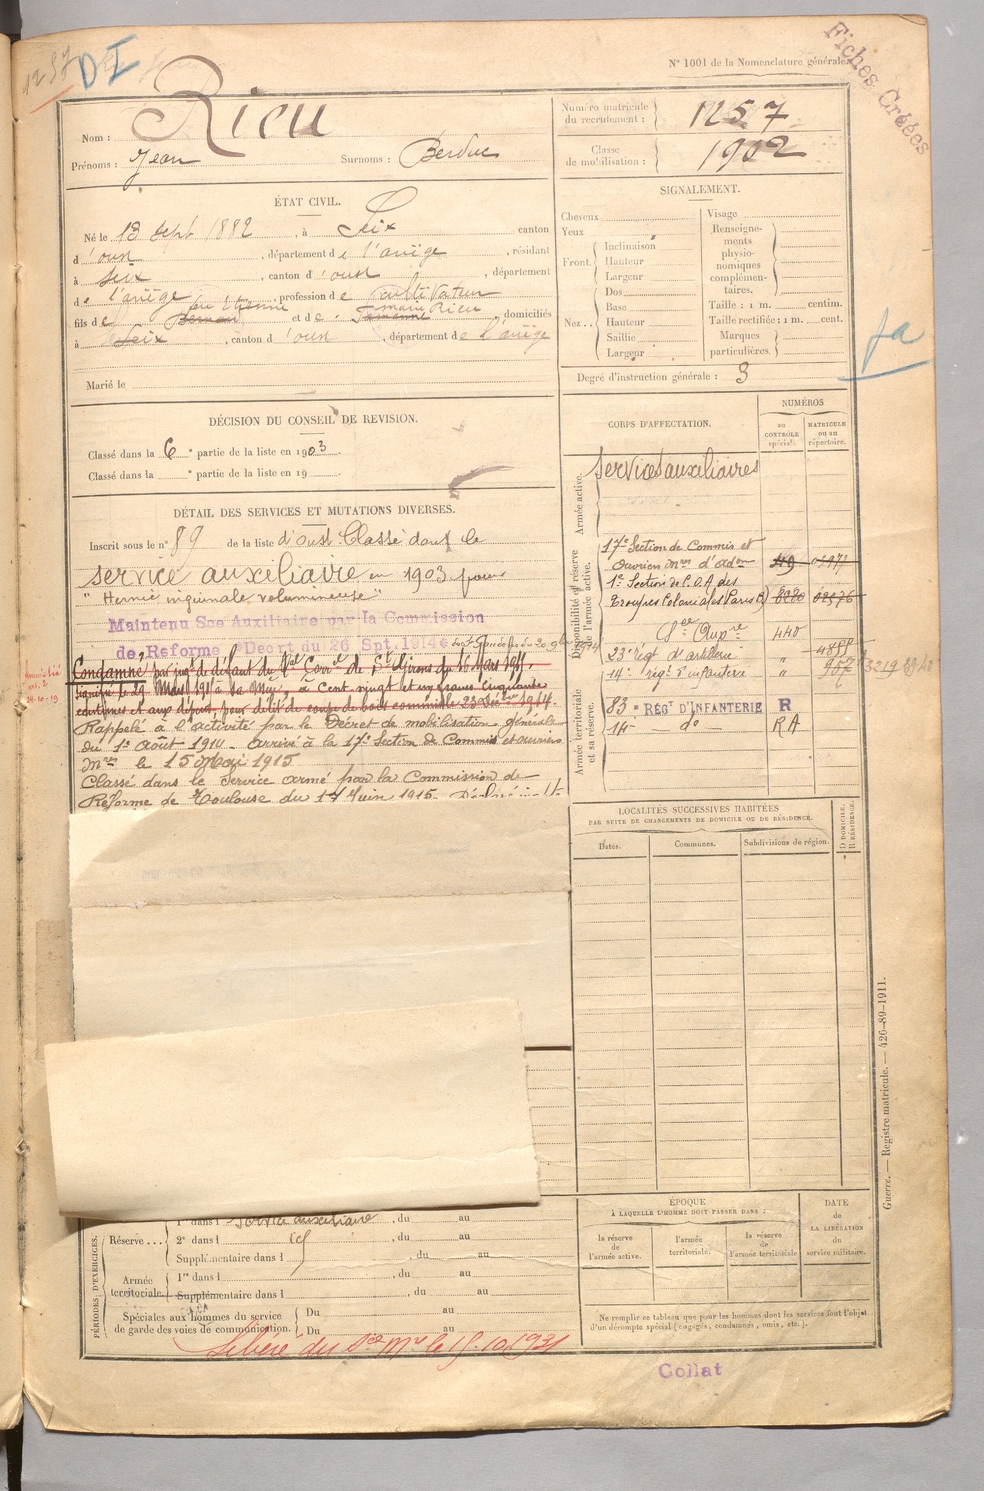 1257
DI
Fiches Créées
N° 1001 de la Nomenclature générale.
Nom : Rieu
Prénoms : Jean Surnoms : Berduc
Numéro matricule du recrutement : 1257
Classe de mobilisation : 1902
ÉTAT CIVIL.
Né le 13 Sept 1882, à Seix canton
d'oust, département de l'ariège, résidant
à Seix, canton d'oust, département
de l'ariège, profession de cultivateur
fils de Jean Etienne et de Rieu, domiciliés
à Seix, canton d'oust, département de l'ariège
Marié le
SIGNALEMENT.
Cheveux
Yeux
Front. Inclinaison
Hauteur
Largeur
Nez... Dos
Base
Hauteur
Saillie
Largeur
Visage
Renseignements physionomiques complémentaires.
Taille : 1 m. centim.
Taille rectifiée : 1 m. cent.
Marques particulières.
Degré d'instruction générale : 3
DÉCISION DU CONSEIL DE REVISION.
Classé dans la 6e partie de la liste en 1903
Classé dans la e partie de la liste en 19
DÉTAIL DES SERVICES ET MUTATIONS DIVERSES.
Inscrit sous le n° 89 de la liste d'oust. Classé dans le
service auxiliaire en 1903 pour
" Hernie inguinale volumineuse "
Maintenu Sce Auxiliaire par la Commission
de Réforme Décret du 26 Spt. 1914
Condamné par jugt de défaut du de St Girons du 16 Mars 1914.
signifié le 24 Mars 1914 à cent vingt et un francs cinquante
centimes et aux dépens pour délit de coupe de bois commis le
Rappelé à l'activité par le Décret de mobilisation générale
du 1er Août 1914. Arrivé à la 17e Section de Commis et ouvriers
Mres le 15 Mai 1915
Classé dans le Service armé par la Commission de
Réforme de Toulouse du 17 Juin 1915.
CORPS D'AFFECTATION.
NUMÉROS
au CONTRÔLE spécial.
MATRICULE ou au répertoire.
Armée active.
Services auxiliaires
Disponibilité et réserve de l'armée active.
17e Section de Commis et
Ouvriers Mres d'adon 49
1e Section de C.O.A des
Troupes Coloniales Paris
440
23e régt d'artillerie " 4855
14e régt d'infanterie " 957
Armée territoriale et sa réserve.
83e RÉGt D'INFANTERIE R
14 — do — RA
LOCALITÉS SUCCESSIVES HABITÉES
PAR SUITE DE CHANGEMENTS DE DOMICILE OU DE RÉSIDENCE.
Dates. Communes. Subdivisions de région.
D DOMICILE. R RÉSIDENCE.
Guerre. — Registre matricule. — 426-89-1911.
PÉRIODES D'EXERCICES.
Réserve... 1re dans l service auxiliaire, du au
2e dans l id, du au
Supplémentaire dans l, du au
Armée territoriale. 1re dans l, du au
Supplémentaire dans l, du au
Spéciales aux hommes du service de garde des voies de communication. Du au
Du au
Libéré du Sce Mre le 15.10.1931
ÉPOQUE
À LAQUELLE L'HOMME DOIT PASSER DANS :
la réserve de l'armée active.
l'armée territoriale.
la réserve de l'armée territoriale
DATE de LA LIBÉRATION du service militaire.
Ne remplir ce tableau que pour les hommes dont les services font l'objet
d'un décompte spécial (engagés, condamnés, omis, etc.).
Collat